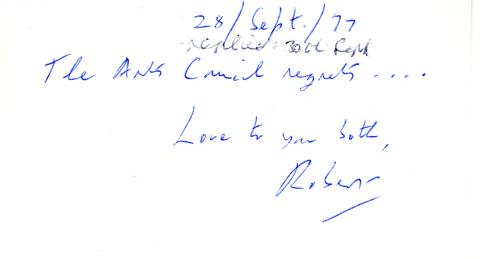 28/Sept./77
replied: 30th Sept
The Arts Council regrets....
Love to you both,
Robert